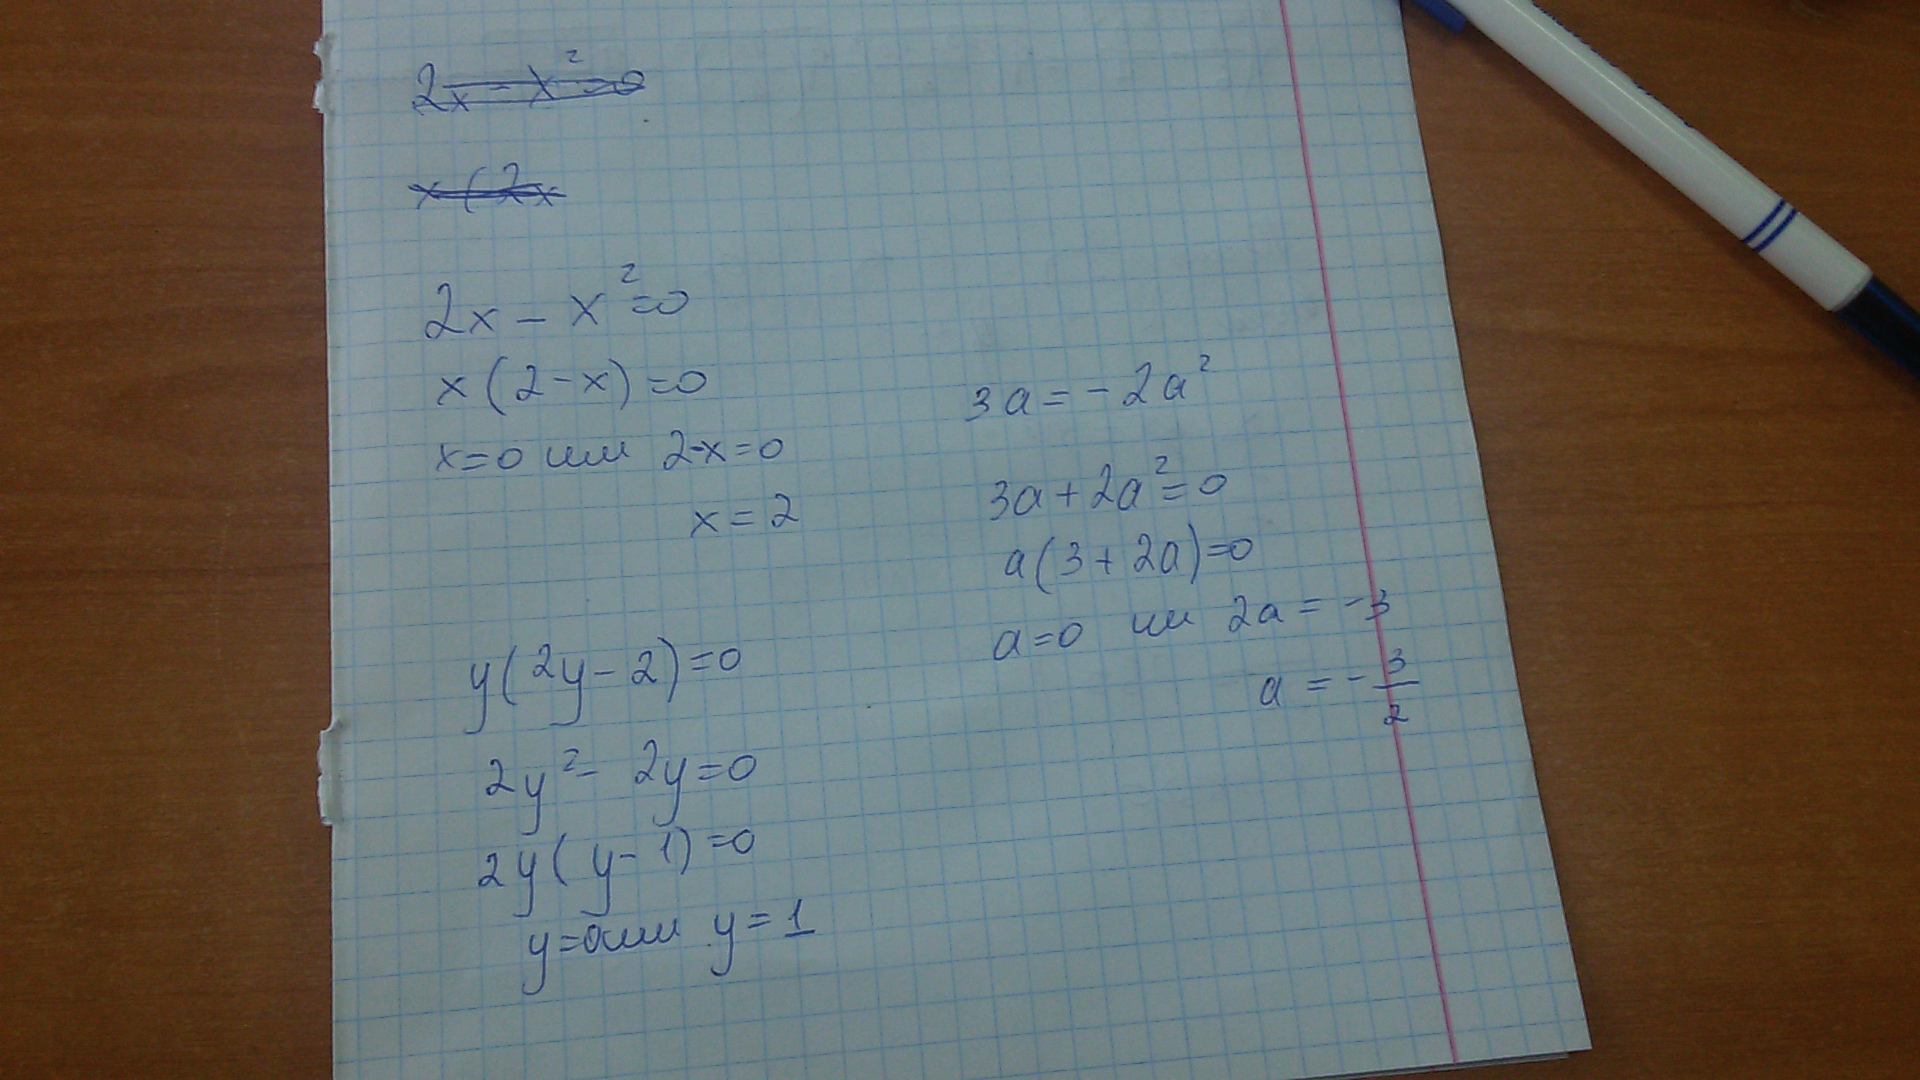 2x - x² = 0
x(2x
2x - x² = 0
x(2-x) = 0
x=0 или 2-x=0
x = 2
y(2y-2)=0
2y² - 2y=0
2y(y-1)=0
y=0 или y=1
3a = -2a²
3a+2a²=0
a(3+2a)=0
a=0 или 2a = -3
a = -3/2